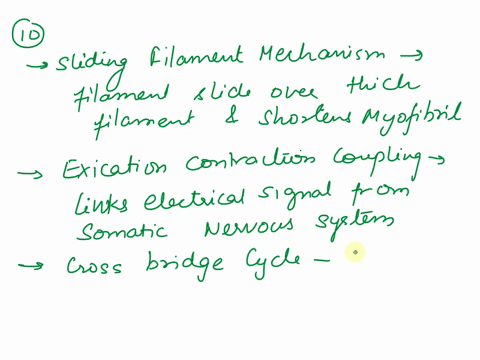 10
→ Sliding Filament Mechanism →
filament slide over thick
filament & shortens Myofibril
→ Exication contraction coupling →
links electrical signal from
Somatic Nervous system
→ Cross bridge Cycle –